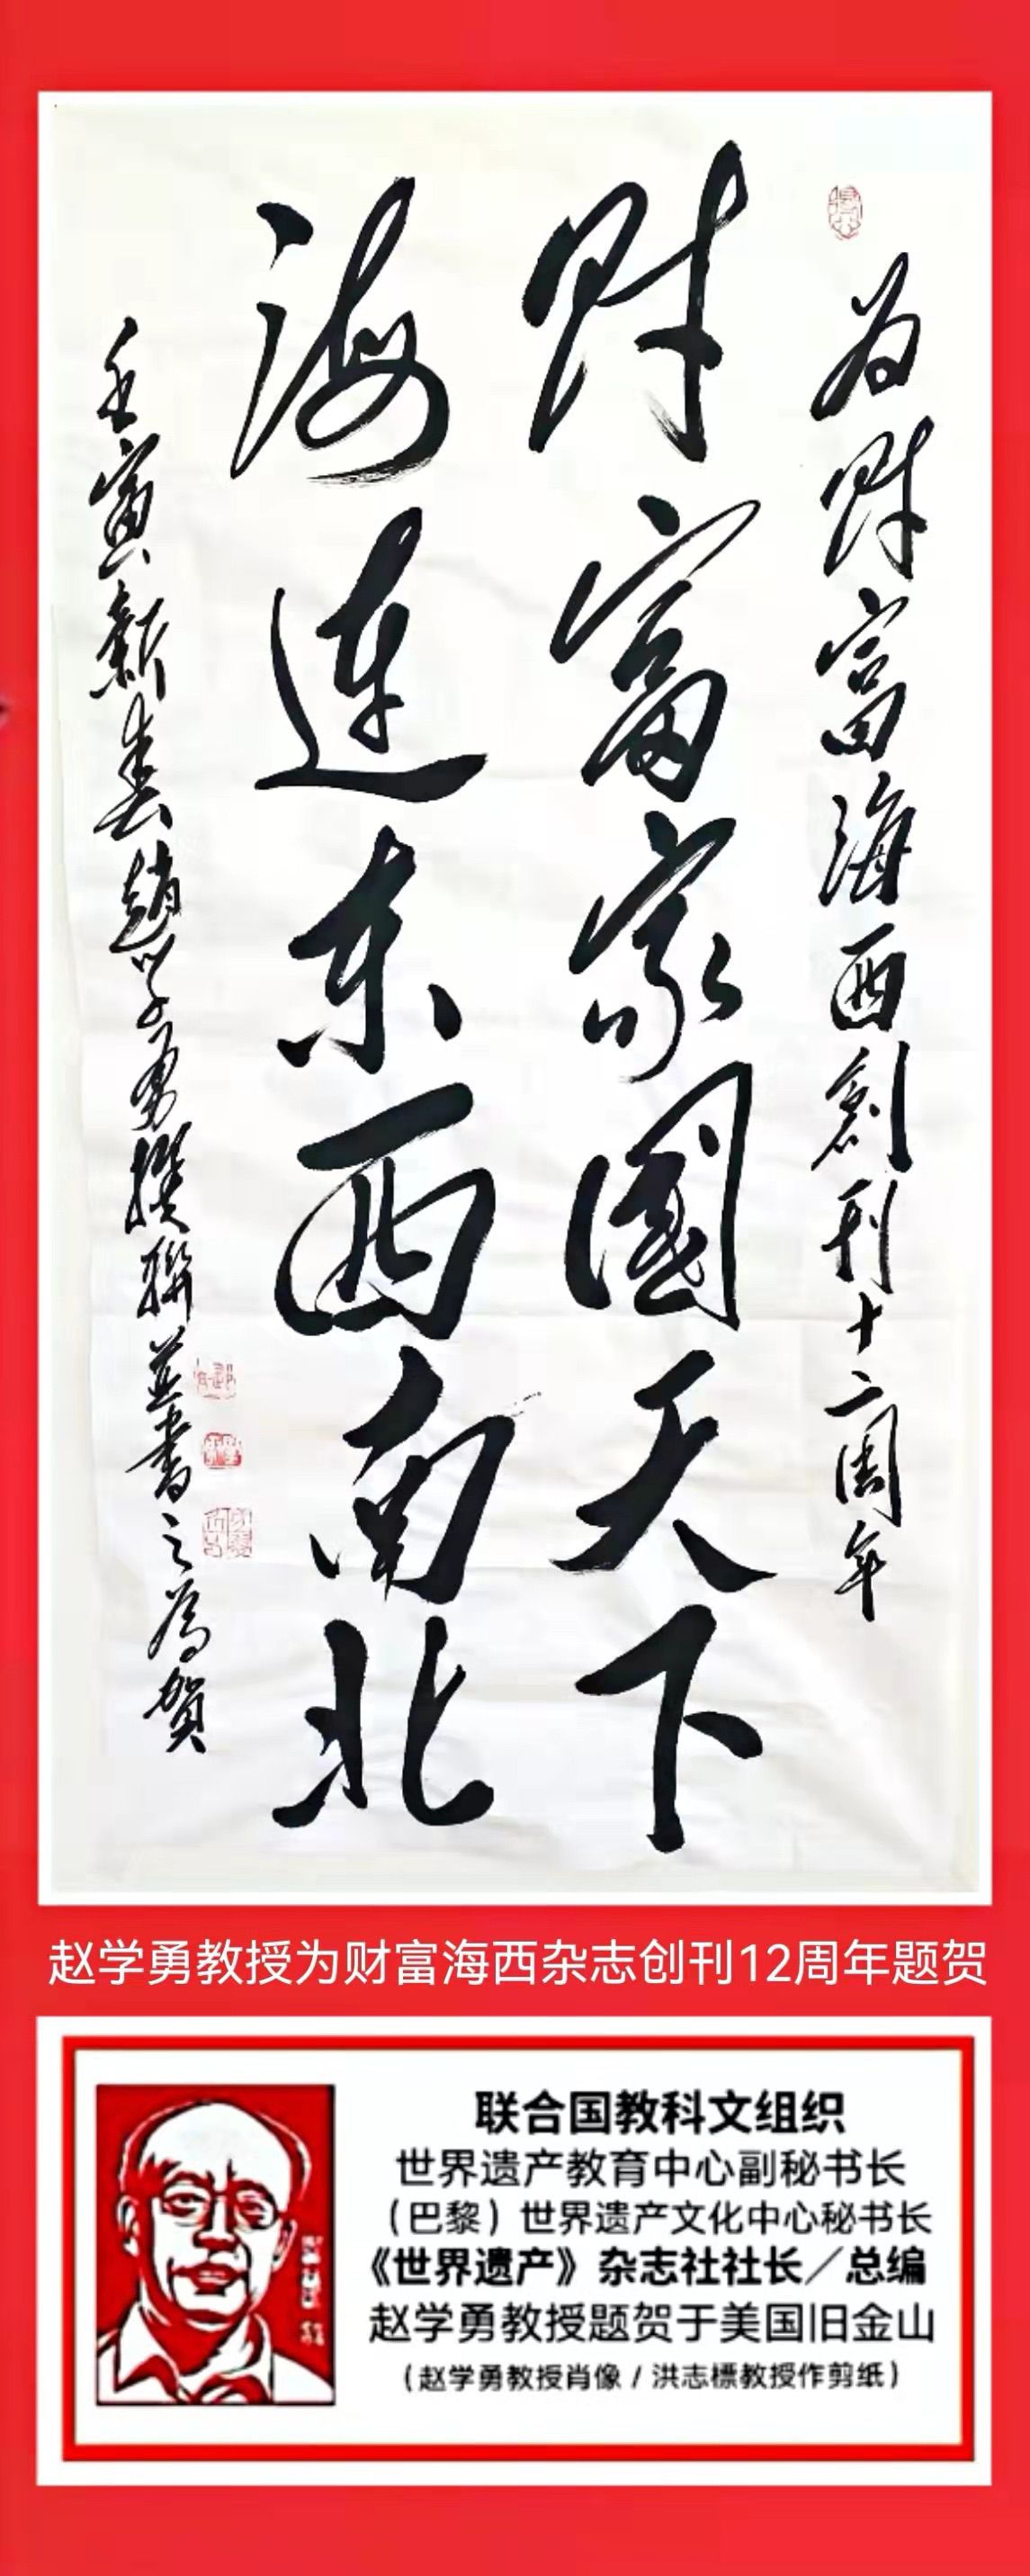 为财富海西創刊十二周年
财富家國天下
海连东西南北
壬寅新春趙学勇撰聯并書之為賀
赵学勇教授为财富海西杂志创刊12周年题贺
联合国教科文组织
世界遗产教育中心副秘书长
（巴黎）世界遗产文化中心秘书长
《世界遗产》杂志社社长／总编
赵学勇教授题贺于美国旧金山
（赵学勇教授肖像 / 洪志標教授作剪纸）